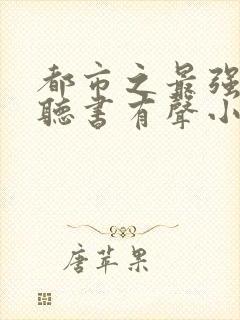 都市之最强
聽書有聲小
唐苹果